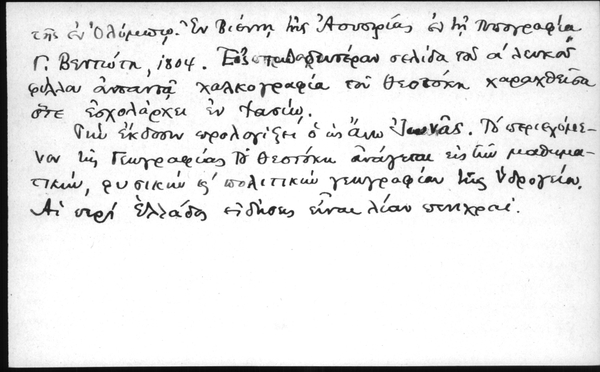 τῆς ἐν Ὀλύμπῳ. Ἐν Βιέννῃ τῆς Αὐστρίας ἐν τῇ τυπογραφίᾳ
Γ. Βεντώτη, 1804. σελίδα τοῦ α' λευκοῦ
φύλλου ἀπαντᾷ χαλκογραφία τοῦ Θεοτόκη χαραχθεῖσα
ὅτε ἐσχολάρχει ἐν Ἰασίῳ.
Τὴν ἔκδοσιν προλογίζει ὁ ὡς ἄνω Ἰωνᾶς. Τὸ περιεχόμε-
νον τῆς Γεωγραφίας τοῦ Θεοτόκη ἀνάγεται εἰς τὴν μαθημα-
τικήν, φυσικὴν κ' πολιτικὴν γεωγραφίαν τῆς Ὑδρογείου.
Αἱ περὶ Ἑλλάδος εἰδήσεις εἶναι λίαν πενιχραί.